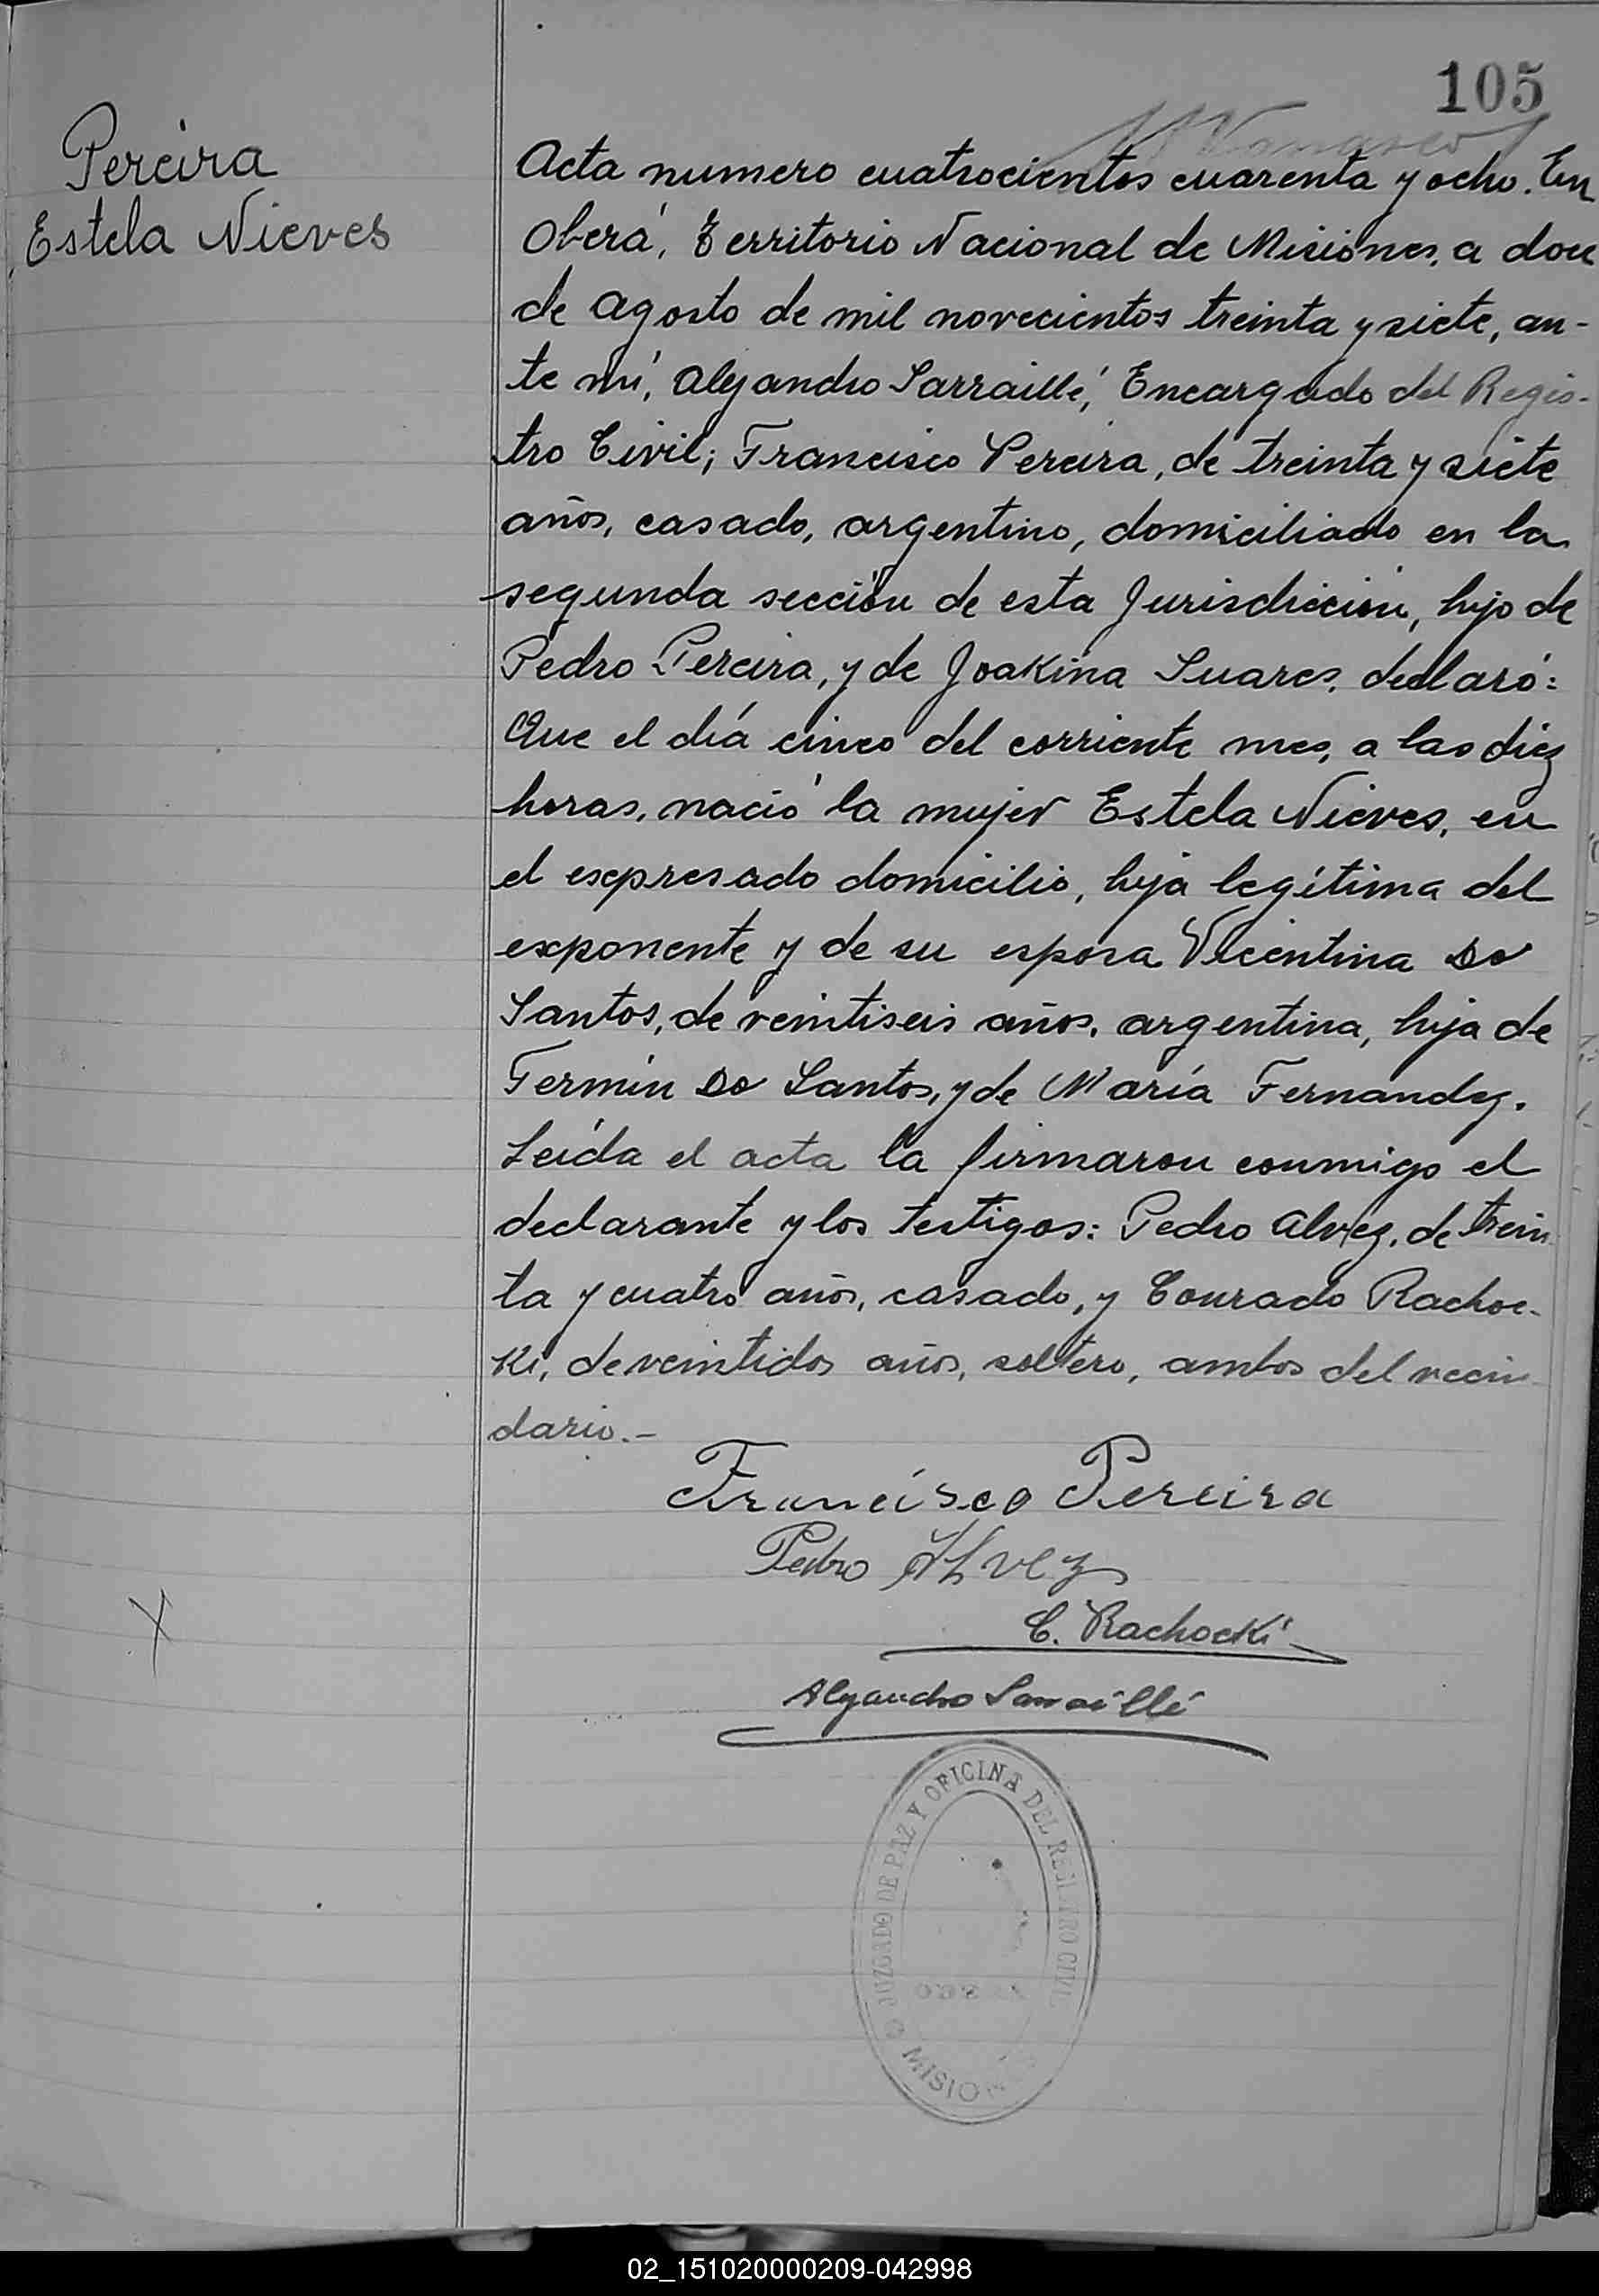 105
Pereira
Estela Nieves
Acta numero cuatrocientos cuarenta y ocho. En
Oberá, Territorio Nacional de Misiones, a doce
de Agosto de mil novecientos treinta y siete, an-
te mí, Alejandro Sarraillé, Encargado del Regis-
tro Civil; Francisco Pereira, de treinta y siete
años, casado, argentino, domiciliado en la
segunda sección de esta Jurisdicción, hijo de
Pedro Pereira, y de Joakina Suares, declaró:
Que el día cinco del corriente mes, a las diez
horas, nació la mujer Estela Nieves, en
el expresado domicilio, hija legítima del
exponente y de su esposa Vicentina Do
Santos, de veintiseis años, argentina, hija de
Fermín Do Santos, y de María Fernandez.
Leída el acta la firmaron conmigo el
declarante y los testigos: Pedro Alvez, de trein
ta y cuatro años, casado, y Conrado Rachoc-
Ki, de veintidos años, soltero, ambos del vecin
dario.-
Francisco Pereira
Pedro Alvez
C. Rachocki
Alejandro Sarraillé
JUZGADO DE PAZ Y OFICINA DEL REGISTRO CIVIL
MISIONES
02_151020000209-042998